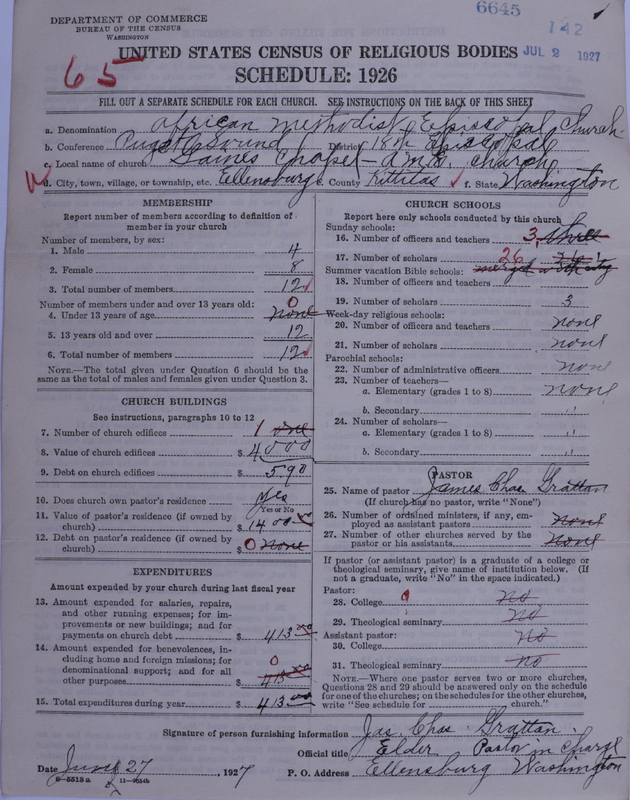 6645
DEPARTMENT OF COMMERCE
BUREAU OF THE CENSUS
WASHINGTON
142
JUL 2 1927
65
UNITED STATES CENSUS OF RELIGIOUS BODIES
SCHEDULE: 1926
FILL OUT A SEPARATE SCHEDULE FOR EACH CHURCH. SEE INSTRUCTIONS ON THE BACK OF THIS SHEET
a. Denomination African Methodist Episcopal Church
b. Conference Puget Sound District 18th Episcopal
c. Local name of church Gaines Chapel - A.M.E. Church
d. City, town, village, or township, etc. Ellensburg e. County Kittitas f. State Washington
MEMBERSHIP
Report number of members according to definition of member in your church
Number of members, by sex:
1. Male 4
2. Female 8
3. Total number of members 12
Number of members under and over 13 years old:
4. Under 13 years of age 0 none
5. 13 years old and over 12
6. Total number of members 12
NOTE.—The total given under Question 6 should be
the same as the total of males and females given under Question 3.
CHURCH BUILDINGS
See instructions, paragraphs 10 to 12
7. Number of church edifices 1 one
8. Value of church edifices $4000
9. Debt on church edifices $ 5.90
10. Does church own pastor's residence yes
Yes or No
11. Value of pastor's residence (if owned by
church) $1400
12. Debt on pastor's residence (if owned by
church) $0 none
EXPENDITURES
Amount expended by your church during last fiscal year
13. Amount expended for salaries, repairs,
and other running expenses; for im-
provements or new buildings; and for
payments on church debt $ 413.00
14. Amount expended for benevolences, in-
cluding home and foreign missions; for
denominational support; and for all
other purposes 0 $ 413.00
15. Total expenditures during year $ 413.00
CHURCH SCHOOLS
Report here only schools conducted by this church
Sunday schools:
16. Number of officers and teachers 3 three
17. Number of scholars 26
Summer vacation Bible schools:
18. Number of officers and teachers
19. Number of scholars 3
Week-day religious schools:
20. Number of officers and teachers none
21. Number of scholars none
Parochial schools:
22. Number of administrative officers none
23. Number of teachers—
a. Elementary (grades 1 to 8) none
b. Secondary "
24. Number of scholars—
a. Elementary (grades 1 to 8) "
b. Secondary "
PASTOR
25. Name of pastor James Chas Grattan
(If church has no pastor, write "None")
26. Number of ordained ministers, if any, em-
ployed as assistant pastors none
27. Number of other churches served by the
pastor or his assistants none
If pastor (or assistant pastor) is a graduate of a college or
theological seminary, give name of institution below. (If
not a graduate, write "No" in the space indicated.)
Pastor:
28. College 0 no
29. Theological seminary no
Assistant pastor:
30. College no
31. Theological seminary no
NOTE.—Where one pastor serves two or more churches,
Questions 28 and 29 should be answered only on the schedule
for one of the churches; on the schedules for the other churches,
write "See schedule for church."
Signature of person furnishing information Jas. Chas Grattan
Official title Elder Pastor in Charge
Date June 27, 1927
P. O. Address Ellensburg Washington